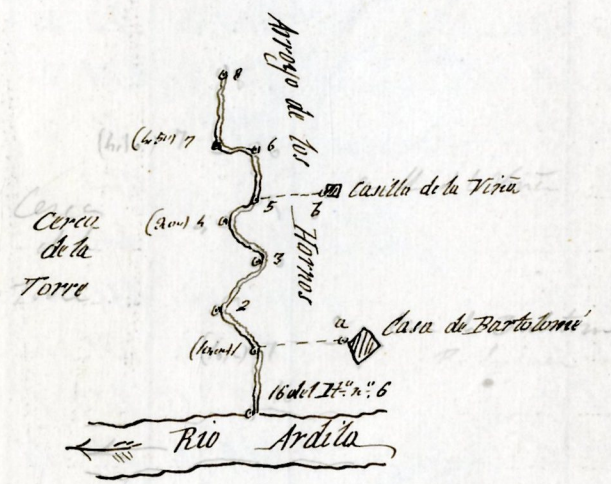 Arroyo de los Hornos
8
7
6
5
b
Casilla de la Viña
4
Cerca
de la
Torre
3
2
a
Casa de Bartolomé
1
16 del Itº. nº. 6
Rio Ardila